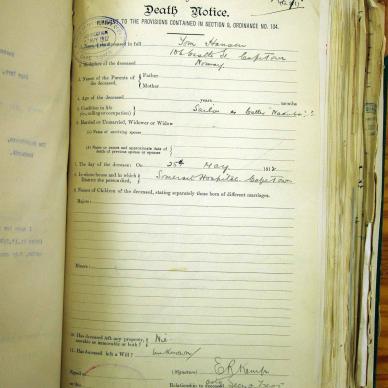 Death Notice.
PURSUANT TO THE PROVISIONS CONTAINED IN SECTION 9, ORDINANCE NO. 104.
1. Name of the deceased in full Tom Hansen
Castle St Capetown
2. Birthplace of the deceased Norway
3. Names of the Parents of the deceased. Father
Mother
4. Age of the deceased years months
5. Condition in life (i.e., calling or occupation) Sailor
6. Married or Unmarried, Widower or Widow
(a) Name of surviving spouse
(b) Name or names and approximate date of death of previous spouse or spouses
7. The day of the decease: On 25th May 1912
8. In whose house and in which District the person died. Somerset Hospital Capetown
9. Names of Children of the deceased, stating separately those born of different marriages.
Majors:
Minors:
10. Has deceased left any property, movable or immovable or both? Nil
11. Has deceased left a Will? unknown
(Signature)
Relationship to deceased